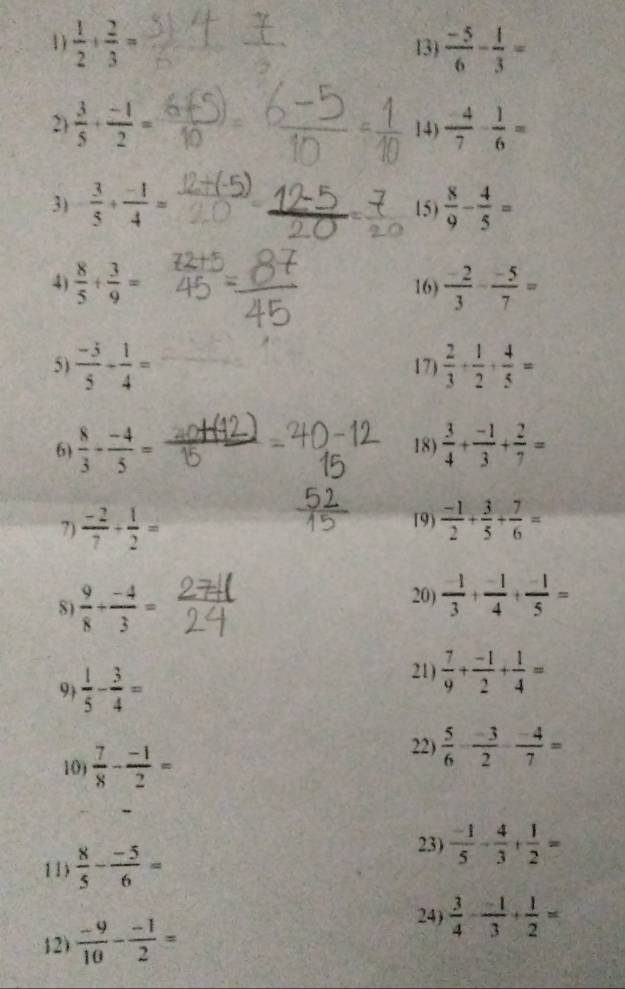 1) 1/2 + 2/3 = 4 7
2) 3/5 + -1/2 = 6+(-5)/10 = 6-5/10 = 1/10
3) 3/5 + -1/4 = 12+(-5)/20 = 12-5/20 = 7/20
4) 8/5 + 3/9 = 72+5/45 = 87/45
5) -3/5 + 1/4 =
6) 8/3 + -4/5 = 40+(-12)/15 = 40-12/15
52/15
7) -2/7 + 1/2 =
8) 9/8 + -4/3 = 27+(/24
9) 1/5 - 3/4 =
10) 7/8 - -1/2 =
11) 8/5 - -5/6 =
12) -9/10 - -1/2 =
13) -5/6 - 1/3 =
14) -4/7 - 1/6 =
15) 8/9 - 4/5 =
16) -2/3 - -5/7 =
17) 2/3 + 1/2 + 4/5 =
18) 3/4 + -1/3 + 2/7 =
19) -1/2 + 3/5 + 7/6 =
20) -1/3 + -1/4 + -1/5 =
21) 7/9 + -1/2 + 1/4 =
22) 5/6 - -3/2 - -4/7 =
23) -1/5 - 4/3 + 1/2 =
24) 3/4 - -1/3 + 1/2 =